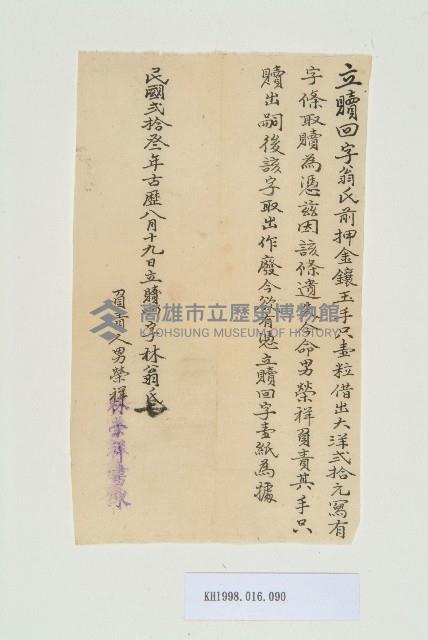 立贖回字翁氏前押金鑲玉手只壹粒借出大洋弍拾元寫有
字條取贖為憑茲因該條遺失今命男榮祥負責其手只
贖出嗣後該字取出作廢今欲有憑立贖回字壹紙為據
民國弍拾叁年古歷八月十九日立贖回字林翁氏
負責人男榮祥
林榮祥書柬
高雄市立歷史博物館
KAOHSIUNG MUSEUM OF HISTORY
KH1998.016.090